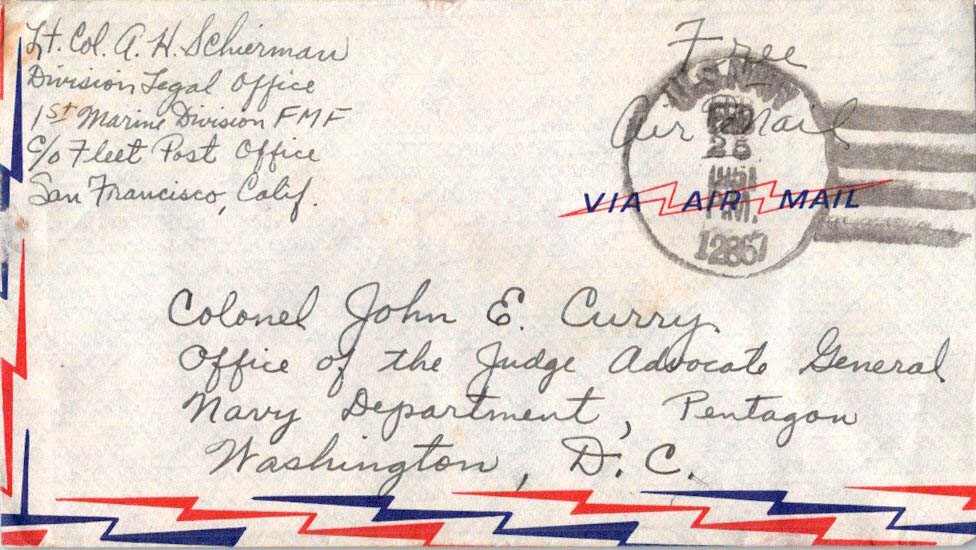 Lt. Col. A. H. Schierman
Division Legal Office
1st Marine Division FMF
c/o Fleet Post Office
San Francisco, Calif.
Free
Air Mail
U.S. NAVY
25
1951
P.M.
12867
VIA AIR MAIL
Colonel John E. Curry
Office of the Judge Advocate General
Navy Department, Pentagon
Washington, D. C.